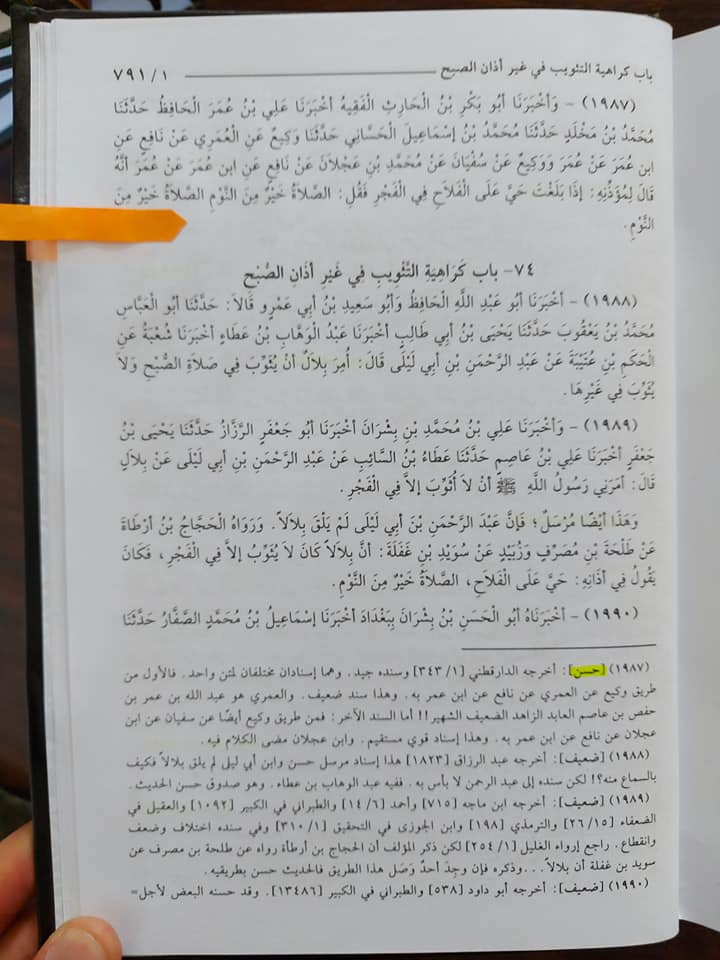 باب كراهية التثويب في غير أذان الصبح ــــــــــ ٧٩١/١
(١٩٨٧) - وَأَخْبَرَنَا أَبُو بَكْرِ بْنُ الْحَارِثِ الْفَقِيهُ أَخْبَرَنَا عَلِي بْنُ عُمَرَ الْحَافِظُ حَدَّثَنَا
مُحَمَّدُ بْنُ مَخْلَدٍ حَدَّثَنَا مُحَمَّدُ بْنُ إِسْمَاعِيلَ الْحَسَّانِي حَدَّثَنَا وَكِيعٌ عَنِ الْعُمَرِي عَنْ نَافِعٍ عَنِ
ابن عُمَرَ عَنْ عُمَرَ وَوَكِيعٌ عَنْ سُفْيَانَ عَنْ مُحَمَّدِ بْنِ عَجْلاَنَ عَنْ نَافِعٍ عَنِ ابن عُمَرَ عَنْ عُمَرَ أَنَّهُ
قَالَ لِمُؤَذِّنِهِ: إِذَا بَلَغْتَ حَيَّ عَلَى الْفَلاَحِ فِي الْفَجْرِ فَقُلِ: الصَّلاَةُ خَيْرٌ مِنَ النَّوْمِ الصَّلاَةُ خَيْرٌ مِنَ
النَّوْمِ.
٧٤- باب كَرَاهِيَةِ التَّثْوِيبِ فِي غَيْرِ أَذَانِ الصُّبْحِ
(١٩٨٨) - أَخْبَرَنَا أَبُو عَبْدِ اللَّهِ الْحَافِظُ وَأَبُو سَعِيدِ بْنُ أَبِي عَمْرٍو قَالاَ: حَدَّثَنَا أَبُو الْعَبَّاسِ
مُحَمَّدُ بْنُ يَعْقُوبَ حَدَّثَنَا يَحْيَى بْنُ أَبِي طَالِبٍ أَخْبَرَنَا عَبْدُ الْوَهَّابِ بْنُ عَطَاءٍ أَخْبَرَنَا شُعْبَةُ عَنِ
الْحَكَمِ بْنِ عُتَيْبَةَ عَنْ عَبْدِ الرَّحْمَنِ بْنِ أَبِي لَيْلَى قَالَ: أُمِرَ بِلاَلٌ أَنْ يُثَوِّبَ فِي صَلاَةِ الصُّبْحِ وَلاَ
يُثَوِّبَ فِي غَيْرِهَا.
(١٩٨٩) - وَأَخْبَرَنَا عَلِي بْنُ مُحَمَّدِ بْنِ بِشْرَانَ أَخْبَرَنَا أَبُو جَعْفَرٍ الرَّزَّازُ حَدَّثَنَا يَحْيَى بْنُ
جَعْفَرٍ أَخْبَرَنَا عَلِي بْنُ عَاصِمٍ حَدَّثَنَا عَطَاءُ بْنُ السَّائِبِ عَنْ عَبْدِ الرَّحْمَنِ بْنِ أَبِي لَيْلَى عَنْ بِلاَلٍ
قَالَ: أَمَرَنِي رَسُولُ اللَّهِ ﷺ أَنْ لاَ أُثَوِّبَ إِلاَّ فِي الْفَجْرِ.
وَهَذَا أَيْضًا مُرْسَلٌ؛ فَإِنَّ عَبْدَ الرَّحْمَنِ بْنَ أَبِي لَيْلَى لَمْ يَلْقَ بِلاَلاً. وَرَوَاهُ الْحَجَّاجُ بْنُ أَرْطَاةَ
عَنْ طَلْحَةَ بْنِ مُصَرِّفٍ وَزُبَيْدٍ عَنْ سُوَيْدِ بْنِ غَفَلَةَ: أَنَّ بِلاَلاً كَانَ لاَ يُثَوِّبُ إِلاَّ فِي الْفَجْرِ، فَكَانَ
يَقُولُ فِي أَذَانِهِ: حَيَّ عَلَى الْفَلاَحِ، الصَّلاَةُ خَيْرٌ مِنَ النَّوْمِ.
(١٩٩٠) - أَخْبَرَنَاهُ أَبُو الْحَسَنِ بْنُ بِشْرَانَ بِبَغْدَادَ أَخْبَرَنَا إِسْمَاعِيلُ بْنُ مُحَمَّدٍ الصَّفَّارُ حَدَّثَنَا
(١٩٨٧) [حسن]: أخرجه الدارقطني [٣٤٣/١] وسنده جيد. وهما إسنادان مختلفان لمتن واحد. فالأول من
طريق وكيع عن العمري عن نافع عن ابن عمر به. وهذا سند ضعيف. والعمري هو عبد الله بن عمر بن
حفص بن عاصم العابد الزاهد الضعيف الشهير!! أما السند الآخر: فمن طريق وكيع أيضًا عن سفيان عن ابن
عجلان عن نافع عن ابن عمر به. وهذا إسناد قوي مستقيم. وابن عجلان مضى الكلام فيه.
(١٩٨٨) [ضعيف]: أخرجه عبد الرزاق [١٨٢٣] هذا إسناد مرسل حسن وابن أبي ليلى لم يلق بلالاً فكيف
بالسماع منه؟! لكن سنده إلى عبد الرحمن لا بأس به. ففيه عبد الوهاب بن عطاء. وهو صدوق حسن الحديث.
(١٩٨٩) [ضعيف]: أخرجه ابن ماجه [٧١٥] وأحمد [١٤/٦] والطبراني في الكبير [١٠٩٢] والعقيل في
الضعفاء [٢٦/١٥] والترمذي [١٩٨] وابن الجوزى في التحقيق [٣١٠/١] وفي سنده اختلاف وضعف
وانقطاع. راجع إرواء الغليل [٢٥٤/١] لكن ذكر المؤلف أن الحجاج بن أرطأة رواه عن طلحة بن مصرف عن
سويد بن غفلة أن بلالاً... وذكره فإن وجِدَ أحدٌ وَصَل هذا الطريق فالحديث حسن بطريقيه.
(١٩٩٠) [ضعيف]: أخرجه أبو داود [٥٣٨] والطبراني في الكبير [١٣٤٨٦]. وقد حسنه البعض لأجل=